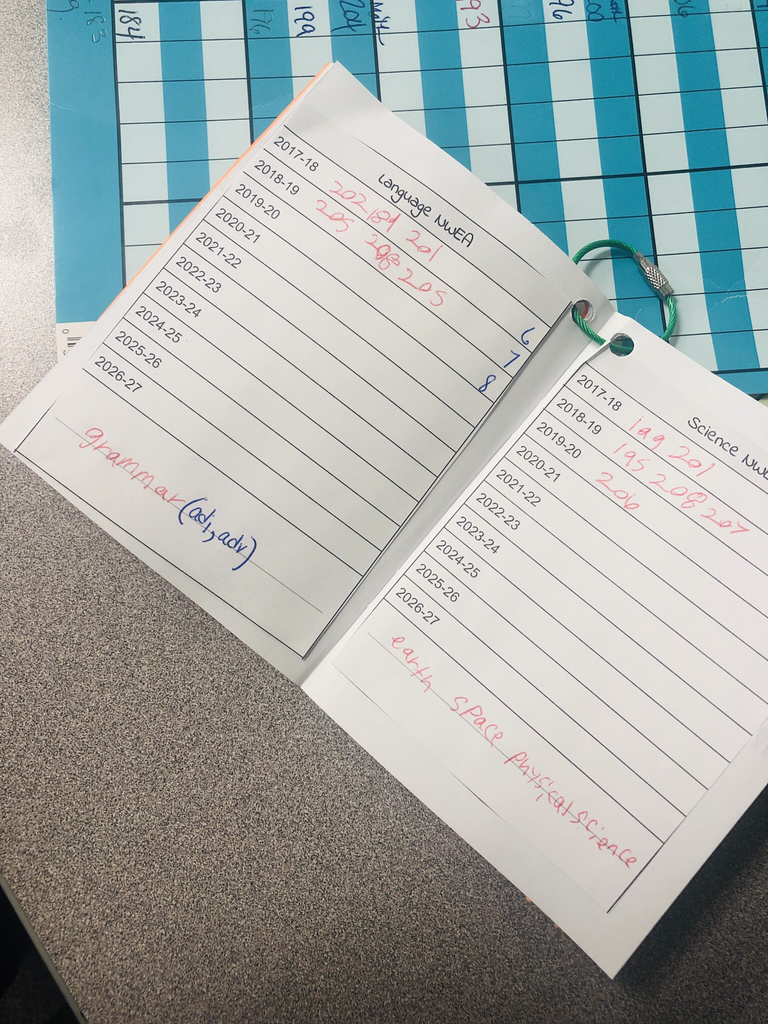 183
184
176
199
204
93
Language NWEA
2017-18 202 189 201
2018-19 205 208 205 6
2019-20 7
2020-21 8
2021-22
2022-23
2023-24
2024-25
2025-26
2026-27
grammar (adj, adv)
Science
2017-18 199 201
2018-19 195 208 207
2019-20 206
2020-21
2021-22
2022-23
2023-24
2024-25
2025-26
2026-27
earth space physical science